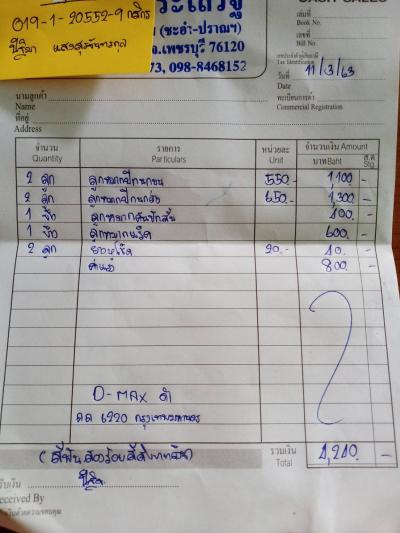 019-1-20552-9 กสิกร
CASH SALES
(ชะอำ-ปราณฯ)
จ.เพชรบุรี 76120
73, 098-8468152
เล่มที่
Book No.
เลขที่
Bill No.
Tax Identification
วันที่ 11/3/63
Date
ทะเบียนการค้า
Commercial Registration
นามลูกค้า
Name
ที่อยู่
Address
จำนวน รายการ หน่วยละ จำนวนเงิน Amount
Quantity Particulars Unit บาท Baht ส.ต. Stg.
2 ลูก ลูกหมากปีกนกบน 550.- 1,100 -
2 ลูก ลูกหมากปีกนกล่าง 650.- 1,300 -
1 ข้าง ลูกหมากคันชักสั้น 400.-
1 ข้าง ลูกหมากแร็ค 600.-
2 ลูก 20.- 40.-
ค่าแรง 800.-
D-MAX ดำ
6220 กรุงเทพมหานคร
(สี่พันสองร้อยสี่สิบบาทถ้วน) รวมเงิน 4,240.-
Total
รับเงิน
Received By